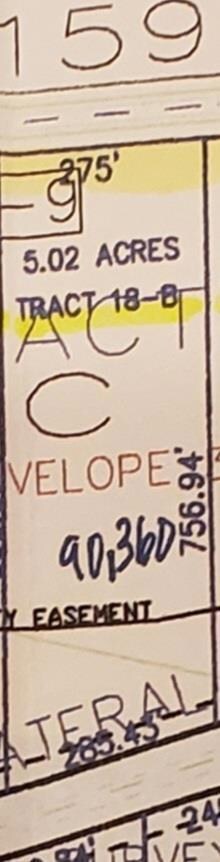 159
275'
-9
5.02 ACRES
TRACT 18-B
ACT
C
VELOPE
756.94'
90,360
Y EASEMENT
ATERAL
285.43'